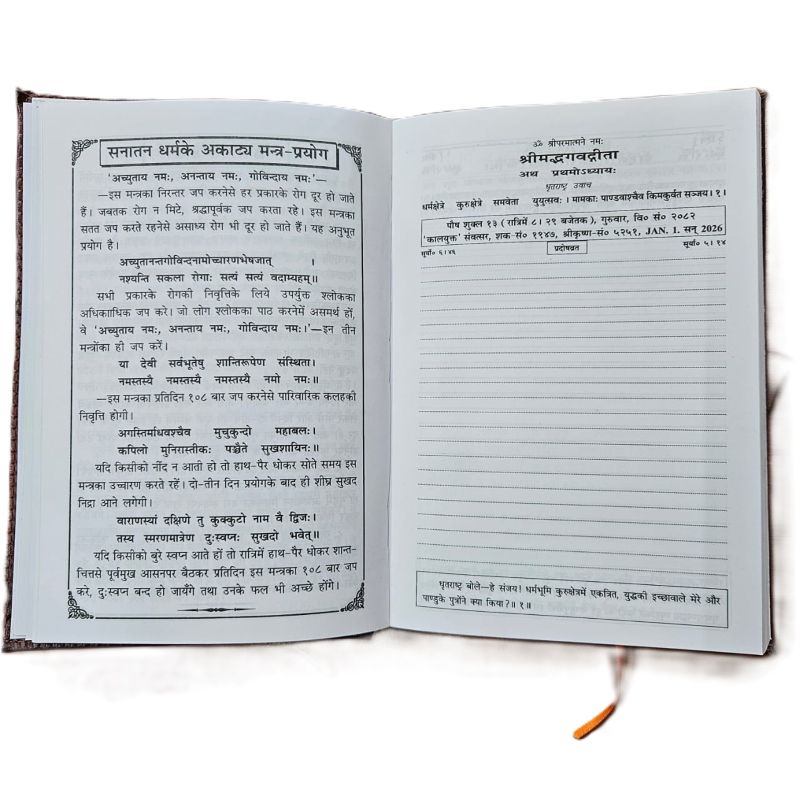 सनातन धर्मके अकाट्य मन्त्र-प्रयोग
‘अच्युताय नमः, अनन्ताय नमः, गोविन्दाय नमः’—
—इस मन्त्रका निरन्तर जप करनेसे हर प्रकारके रोग दूर हो जाते
हैं। जबतक रोग न मिटे, श्रद्धापूर्वक जप करता रहे। इस मन्त्रका
सतत जप करते रहनेसे असाध्य रोग भी दूर हो जाते हैं। यह अनुभूत
प्रयोग है।
अच्युतानन्तगोविन्दनामोच्चारणभेषजात् ।
नश्यन्ति सकला रोगाः सत्यं सत्यं वदाम्यहम्॥
सभी प्रकारके रोगकी निवृत्तिके लिये उपर्युक्त श्लोकका
अधिकाधिक जप करे। जो लोग श्लोकका पाठ करनेमें असमर्थ हों,
वे ‘अच्युताय नमः, अनन्ताय नमः, गोविन्दाय नमः।’—इन तीन
मन्त्रोंका ही जप करें।
या देवी सर्वभूतेषु शान्तिरूपेण संस्थिता।
नमस्तस्यै नमस्तस्यै नमस्तस्यै नमो नमः॥
—इस मन्त्रका प्रतिदिन १०८ बार जप करनेसे पारिवारिक कलहकी
निवृत्ति होगी।
अगस्तिर्माधवश्चैव मुचुकुन्दो महाबलः।
कपिलो मुनिरास्तीकः पञ्चैते सुखशायिनः॥
यदि किसीको नींद न आती हो तो हाथ-पैर धोकर सोते समय इस
मन्त्रका उच्चारण करते रहें। दो-तीन दिन प्रयोगके बाद ही शीघ्र सुखद
निद्रा आने लगेगी।
वाराणस्यां दक्षिणे तु कुक्कुटो नाम वै द्विजः।
तस्य स्मरणमात्रेण दुःस्वप्नः सुखदो भवेत्॥
यदि किसीको बुरे स्वप्न आते हों तो रात्रिमें हाथ-पैर धोकर शान्त-
चित्तसे पूर्वमुख आसनपर बैठकर प्रतिदिन इस मन्त्रका १०८ बार जप
करे, दुःस्वप्न बन्द हो जायँगे तथा उनके फल भी अच्छे होंगे।
ॐ श्रीपरमात्मने नमः
श्रीमद्भगवद्गीता
अथ प्रथमोऽध्यायः
धृतराष्ट्र उवाच
धर्मक्षेत्रे कुरुक्षेत्रे समवेता युयुत्सवः। मामकाः पाण्डवाश्चैव किमकुर्वत सञ्जय। १।
पौष शुक्ल १३ (रात्रिमें ८। २९ बजेतक), गुरुवार, वि० सं० २०८२
‘कालयुक्त’ संवत्सर, शक-सं० १९४७, श्रीकृष्ण-सं० ५२५१, JAN. 1. सन् 2026
सूर्यो० ६।४६ प्रदोषव्रत सूर्या० ५।१४
धृतराष्ट्र बोले—हे संजय! धर्मभूमि कुरुक्षेत्रमें एकत्रित, युद्धकी इच्छावाले मेरे और
पाण्डुके पुत्रोंने क्या किया?॥ १॥